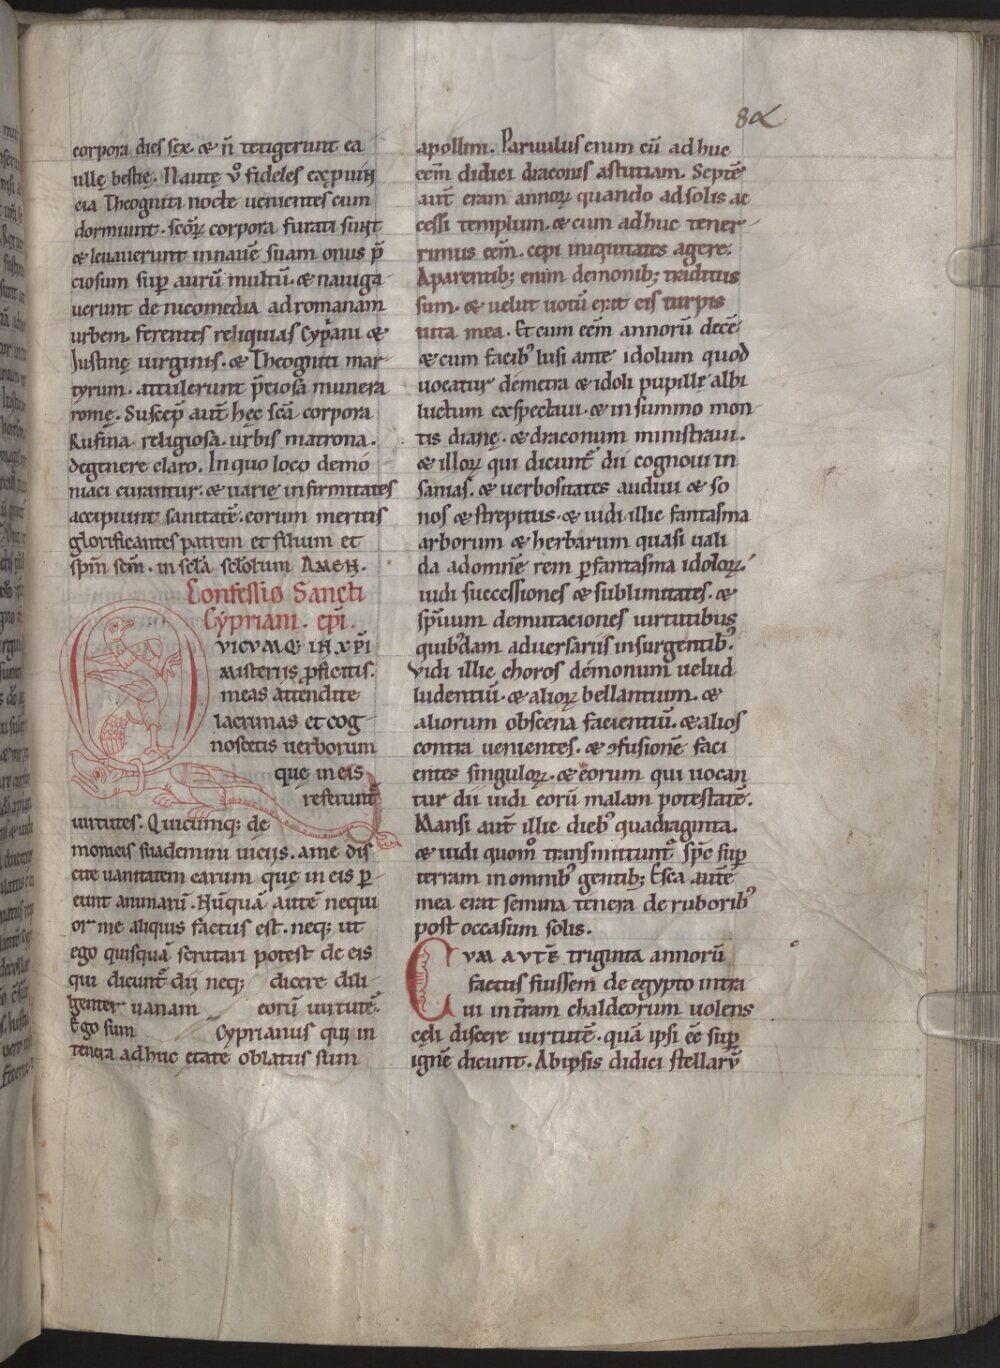 84
corpora dies sex. & n̄ tetigerunt ea
ullę bestię. Nautę v̊ fideles ex puin
cia Theogniti nocte uenientes cum
dormiunt. scōꝝ corpora furati sunt
& leuauerunt in nauē suam onus p̄
ciosum sup aurū multū. & nauiga
uerunt de nicomedia ad romanam
urbem. ferentes reliquias Cyp̄ani &
Iustinę uirginis. & Theogniti mar-
tyrum. attulerunt p̄ciosa munera
romę. Suscep̄ aut̄ hęc scā corpora
Rufina religiosa urbis matrona.
de genere claro. In quo loco demo
niaci curantur. & uarię infirmitates
accipiunt sanitatē. eorum meritis
glorificantes patrem et filium et
spm̄ scm̄. in scl̄a scl̄orum AMEN.
Confessio Sancti
Cypriani. epi̅.
QVICVMQ; IN XPI̅
misteriis ꝓficitis.
meas attendite
lacrimas et cog-
noscetis uerborum
quę in eis
referunt᷑
uirtutes. Quicumq; de
momeis suademini uiciis. a me dis
cite uanitatem earum quę in eis p̄
eunt animarū. Nūquā autē nequi
or me aliquis factus est. neq; ut
ego quisquā scrutari potest de eis
qui dicunt᷑ dii neq; dicere dili
genter uanam eorū uirtutē.
Ego sum Cyprianus qui in
tenera adhuc etate oblatus sum
apollini. Paruulus enim cū adhuc
eēm didici draconis astutiam. Septē
aut̄ eram annoꝝ quando ad solis ac
cessi templum. & cum adhuc tener-
rimus eēm. cepi iniquitates agere.
A parentib; enim demonib; traditus
sum. & uelut uotū erat eis turpis
uita mea. Et cum eēm annorū decē
& cum facib᷒ lusi ante idolum quod
uocatur demetra & idoli pupillę albi
luctum exspectaui. & in summo mon-
tis dianę. & draconum ministraui.
& illoꝝ qui dicunt᷑ dii cognoui in
sanias. & uerbositates audiui & so
nos & strepitus. & uidi illic fantasma
arborum & herbarum quasi uali
da ad omnē rem ꝑ fantasma idoloꝝ.
uidi successiones & sublimitates. &
sp̄uum demutaciones uirtutibus
quib᷒dam aduersariis insurgentib᷒.
Vidi illic choros demonum uelud
ludentiū. & alioꝝ bellantium. &
aliorum obscena facientiū. & alios
contra uenientes. & ↄfusionē faci
entes singuloꝝ. & eorum qui uocan
tur dii uidi eorū malam potestatē.
Mansi aut̄ illic dieb᷒ quadraginta.
& uidi quom̊ transmittunt᷑ sp̄c sup
terram in omnib᷒ gentib; Esca autē
mea erat semina tenera de ruborib᷒
post occasum solis.
CVM AVTĒ triginta annorū
factus fuissem de egypto intra
ui in t̄ram chaldeorum uolens
cęli discere uirtutē. quā ipsi ēē sup
ignē dicunt. Ab ipsis didici stellarū